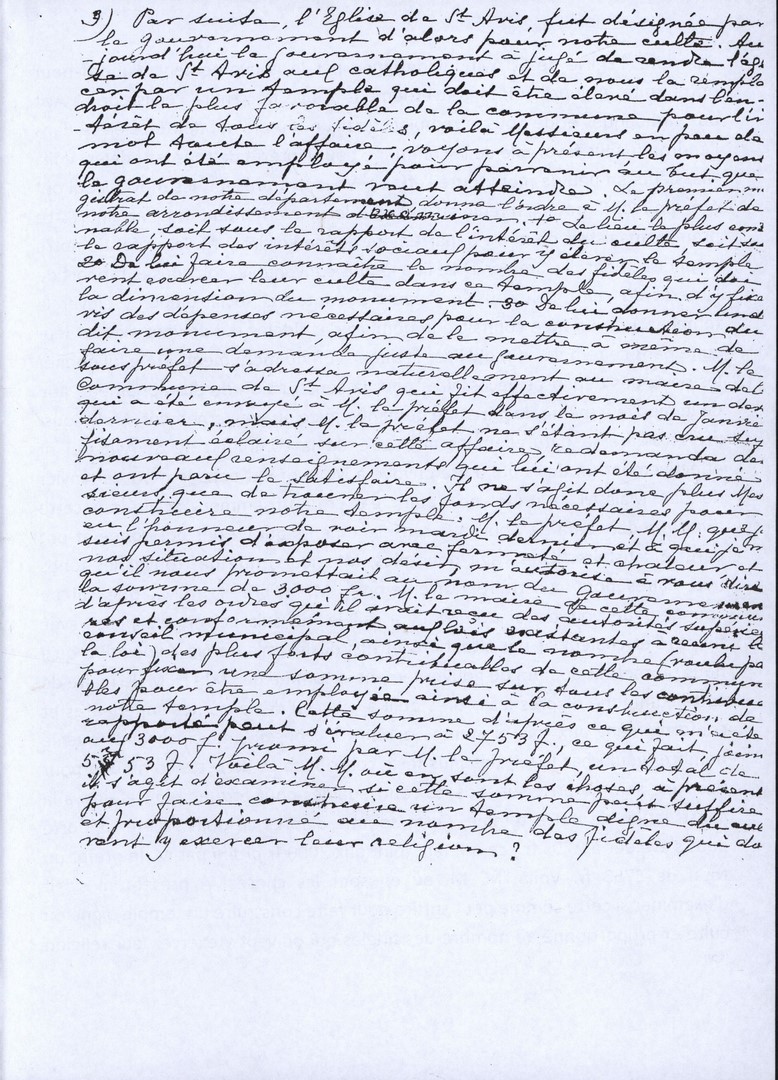 3) Par suite, l'Eglise de St Avis, fut désignée par
le gouvernement d'alors pour notre culte. Au
jourd'hui le gouvernement a jugé de rendre l'égli
se de St Avis aux catholiques et de nous la rempla
cer par un temple qui doit être élevé dans l'en-
droit le plus favorable de la commune pour l'in
-térêt de tous les fidèles, voilà Messieurs en peu de
mot toute l'affaire, voyons à présent, les moyens
qui ont été employé pour parvenir au but que
le gouvernement veut atteindre. Le premier ma
gistrat de notre département donne l'ordre à M. le préfet de
notre arrondissement 1o De lieu le plus conve
nable, soit sous le rapport de l'intérêt du culte soit sous
le rapport des intérêts sociaux pour y élever le temple
2o De lui faire connaître le nombre des fidèles qui doi
vent exercer leur culte dans ce temple, afin d'y fixer
la dimension du monument 3o De lui donner un de
vis des dépenses nécessaires pour la construction du
dit monument, afin de le mettre à même de
faire une demande juste au gouvernement. M. le
sous préfet s'adressa naturellement au maire de la
commune de St Avis qui fit effectivement un devis
qui a été envoyé à M. le préfet dans le mois de Janvier
dernier, mais M. le préfet ne s'étant pas cru suf
fisament éclairé sur cette affaire, redemanda de
nouveaux renseignements qui lui ont été donné
et ont paru le satisfaire. Il ne s'agit donc plus Mes
sieurs, que de trouver les fonds nécessaires pour
construire notre temple. M. le préfet M.M. que j'ai
eu l'honneur de voir mardi dernier et à qui je me
suis permis d'exposer avec fermeté et chaleur et
nos situation et nos désir, m'autorise à vous dire
qu'il nous promettait au nom du gouvernement
la somme de 3000 fr. M. le maire de cette commune
d'après les ordres qu'il avait reçu des autorités supérieu
res et conformément aux lois existantes a réuni le
conseil municipal ainsi que le nombre (voulu par
la loi) des plus forts contribuables de cette commune
pour fixer une somme prise sur tous les contribua
bles pour être employée ainsi à la construction de
notre temple. Cette somme d'après ce que m'a été
rapporté peut s'évaluer à 2753 f., ce qui fait, joint
aux 3000 f. promi par M. le Préfet, un total de
5753 f. Voilà M.M. où en sont les choses, à présent
il s'agit d'examiner si cette somme peut suffire
pour faire construire un temple digne du culte
et proportionné au nombre des fidèles qui doi
vent y exercer leur religion ?